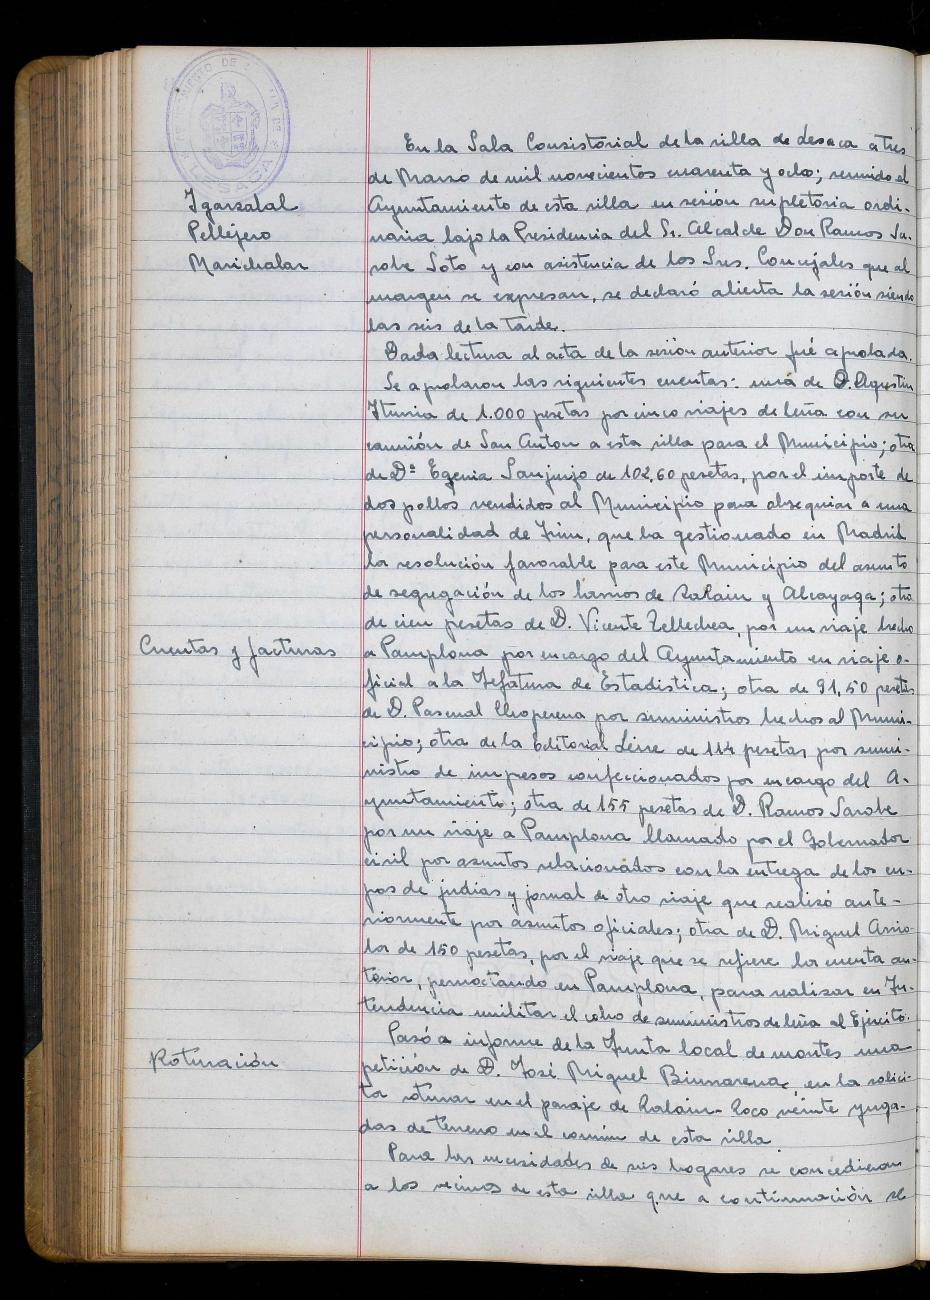 LESACA
Igarzabal
Pellejero
Marichalar
En la Sala Consistorial de la villa de Lesaca a tres
de Marzo de mil novecientos cuarenta y ocho; reunido el
Ayuntamiento de esta villa en sesión supletoria ordi-
naria bajo la Presidencia del Sr. Alcalde Don Ramos Sa-
robe Soto y con asistencia de los Sres. Concejales que al
margen se expresan, se declaró abierta la sesión siendo
las seis de la tarde.
Dada lectura al acta de la sesión anterior fué aprobada.
Se aprobaron las siguientes cuentas: una de D. Agustin
Iturria de 1.000 pesetas por cinco viajes de leña con su
camión de San Anton a esta villa para el Municipio; otra
de Dª Egenia Sanjurjo de 102,60 pesetas, por el importe de
dos pollos vendidos al Municipio para obsequiar a una
personalidad de Irun, que ha gestionado en Madrid
la resolución favorable para este Municipio del asunto
de segregación de los barrios de Zalain y Alcayaga; otra
de cien pesetas de D. Vicente Tellechea, por un viaje hecho
Cuentas y facturas
a Pamplona por encargo del Ayuntamiento en viaje o-
ficial a la Jefatura de Estadistica; otra de 91,50 pesetas
de D. Pascual Choperena por suministros hechos al Muni-
cipio; otra de la Editorial Leire de 114 pesetas por sumi-
nistro de impresos confeccionados por encargo del A-
yuntamiento; otra de 155 pesetas de D. Ramos Sarobe
por un viaje a Pamplona llamado por el Gobernador
civil por asuntos relacionados con la entrega de los cu-
pos de judias y jornal de otro viaje que realizó ante-
riormente por asuntos oficiales; otra de D. Miguel Arrio-
la de 150 pesetas, por el viaje que se refiere la cuenta an-
terior, pernoctando en Pamplona, para realizar en In-
tendencia militar el cobro de suministros de leña al Ejército.
Pasó a informe de la Junta local de montes una
Roturación
petición de D. José Miguel en la solici-
ta roturar en el paraje de Zalain-Zoco veinte yuga-
das de terreno en el común de esta villa
Para las necesidades de sus hogares se concedieron
a los vecinos de esta villa que a continuación se